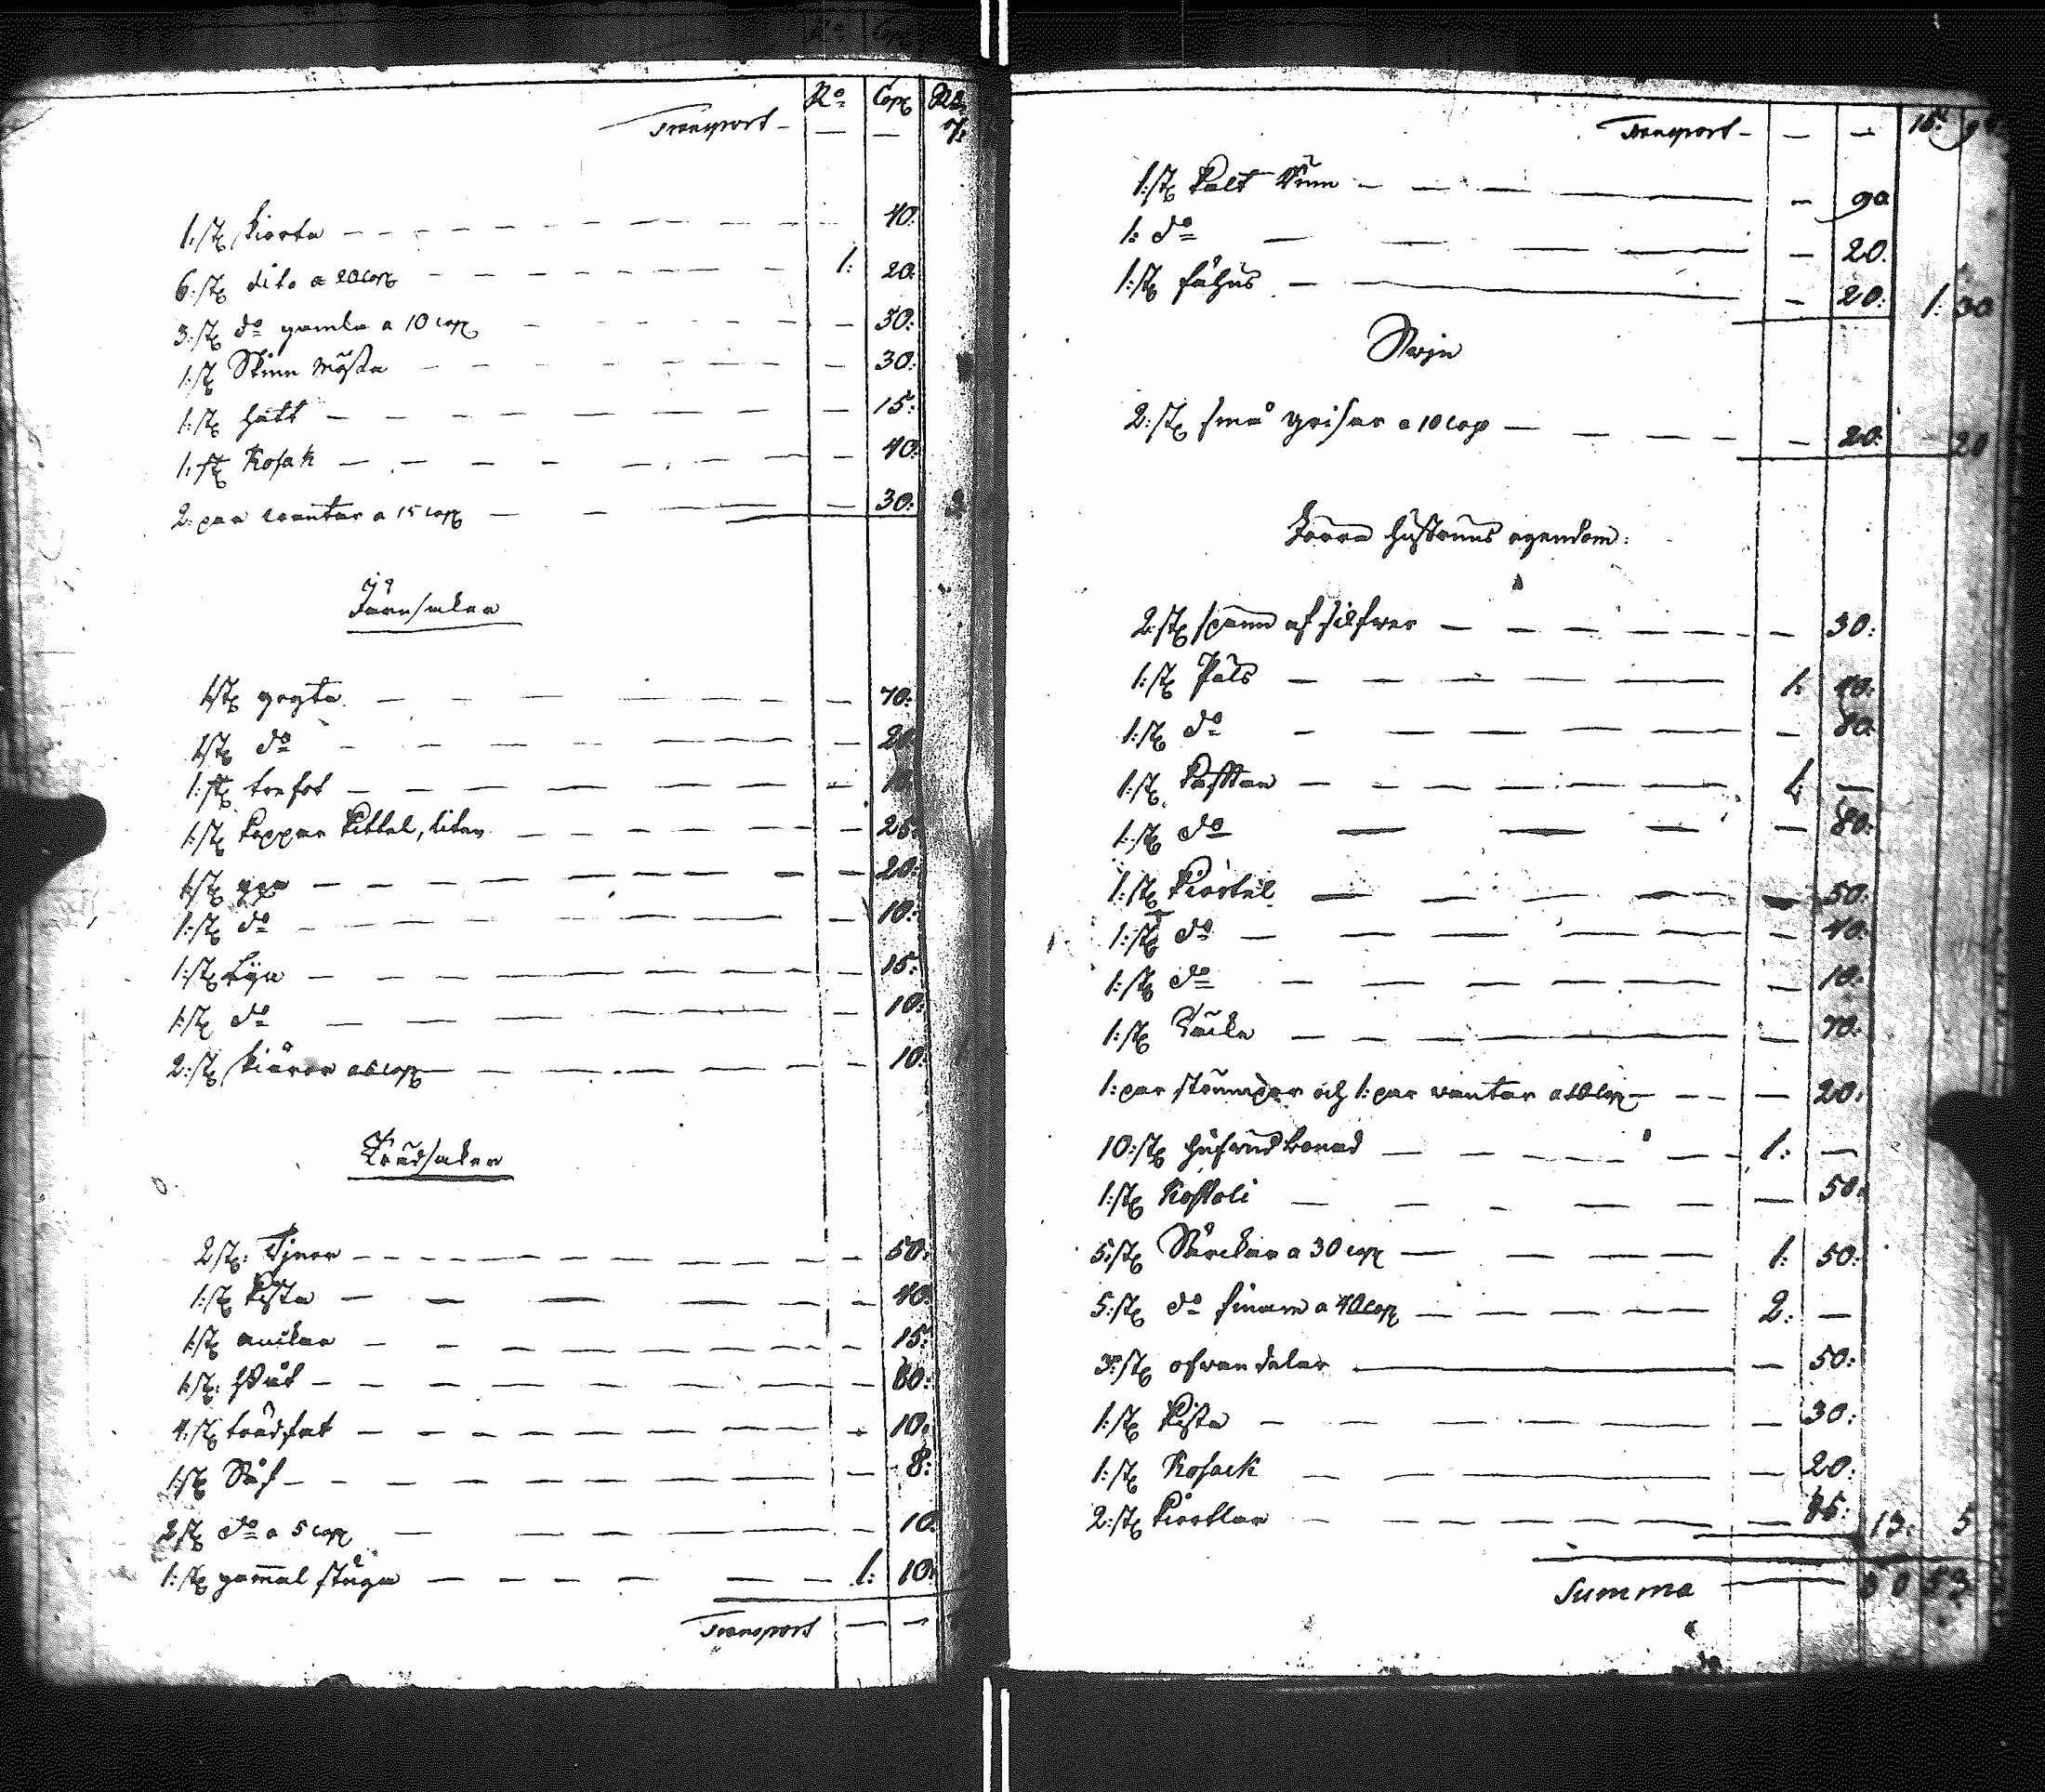 Ro Cop Ro
Transport — — 7:
1: st skiorta 40:
6: st dito a 20 cop 1: 20:
3: st do gamla a 10 cop 30:
1: st Skinn Mössa 30:
1: st hatt 15:
1: st Kosak 40:
2: par wantar a 15 cop 30:
Järnsaker
1: st gryta 70:
1: st do 20
1: st trefot
1: st koppar kittel, liten 25:
1: st yxa 20:
1: st do 10:
1: st Lija 15:
1: st do 10:
2: st skiäror a 5 cop 10:
Trädsaker
2 st: Tjnor 50:
1: st kista 40:
1: st anckar 15:
1: st: 60:
4: st trädfat 10:
1: st Såf 8:
2: st do a 5 cop 10:
1: st gammal stuga 1: 10:
Transport — —
Transport — — 15: 90:
1: st 90
1: do 20.
1: st fähus 20: 1: 30
Swjn
2: st små grisar a 10 cop 20: 20
hustruns egendom:
2: st spänn af silfwer 30:
1: st Päls 1: 40:
1: st do 80:
1: st kafftan 1: —
1: st do 80:
1: st kiortel 50:
1: st do 40:
1: st do 10:
1: st Täcke 70:
1: par strumpor och 1: par wantar a 10 cop 20:
10: st hufwudbonad 1: —
1: st 50:
5: st Särckar a 30 cop 1: 50:
5: st do finare a 40 cop 2: —
3: st ofwandelar 50:
1: st kista 30:
1: st Kosack 20:
2: st kiortlar 75: 13: 5
Summa